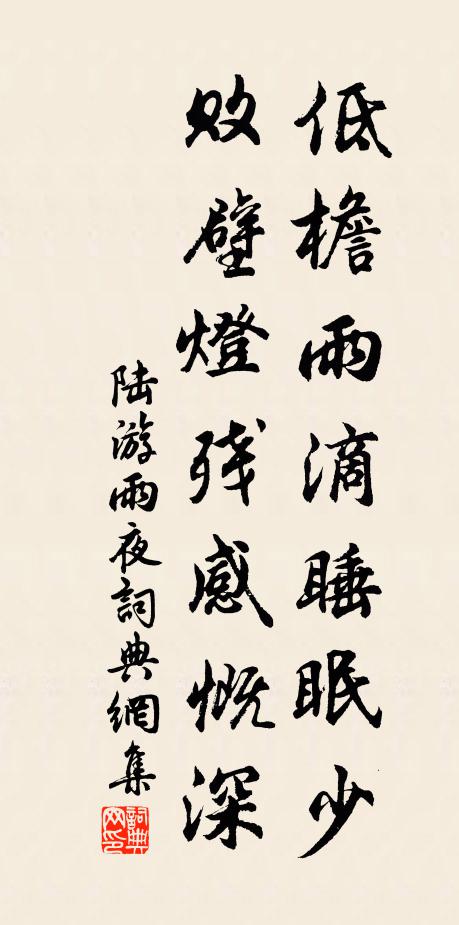 低檐雨滴睡眠少
败壁燈残感慨深
陆游雨夜詞典網集
詞典网印